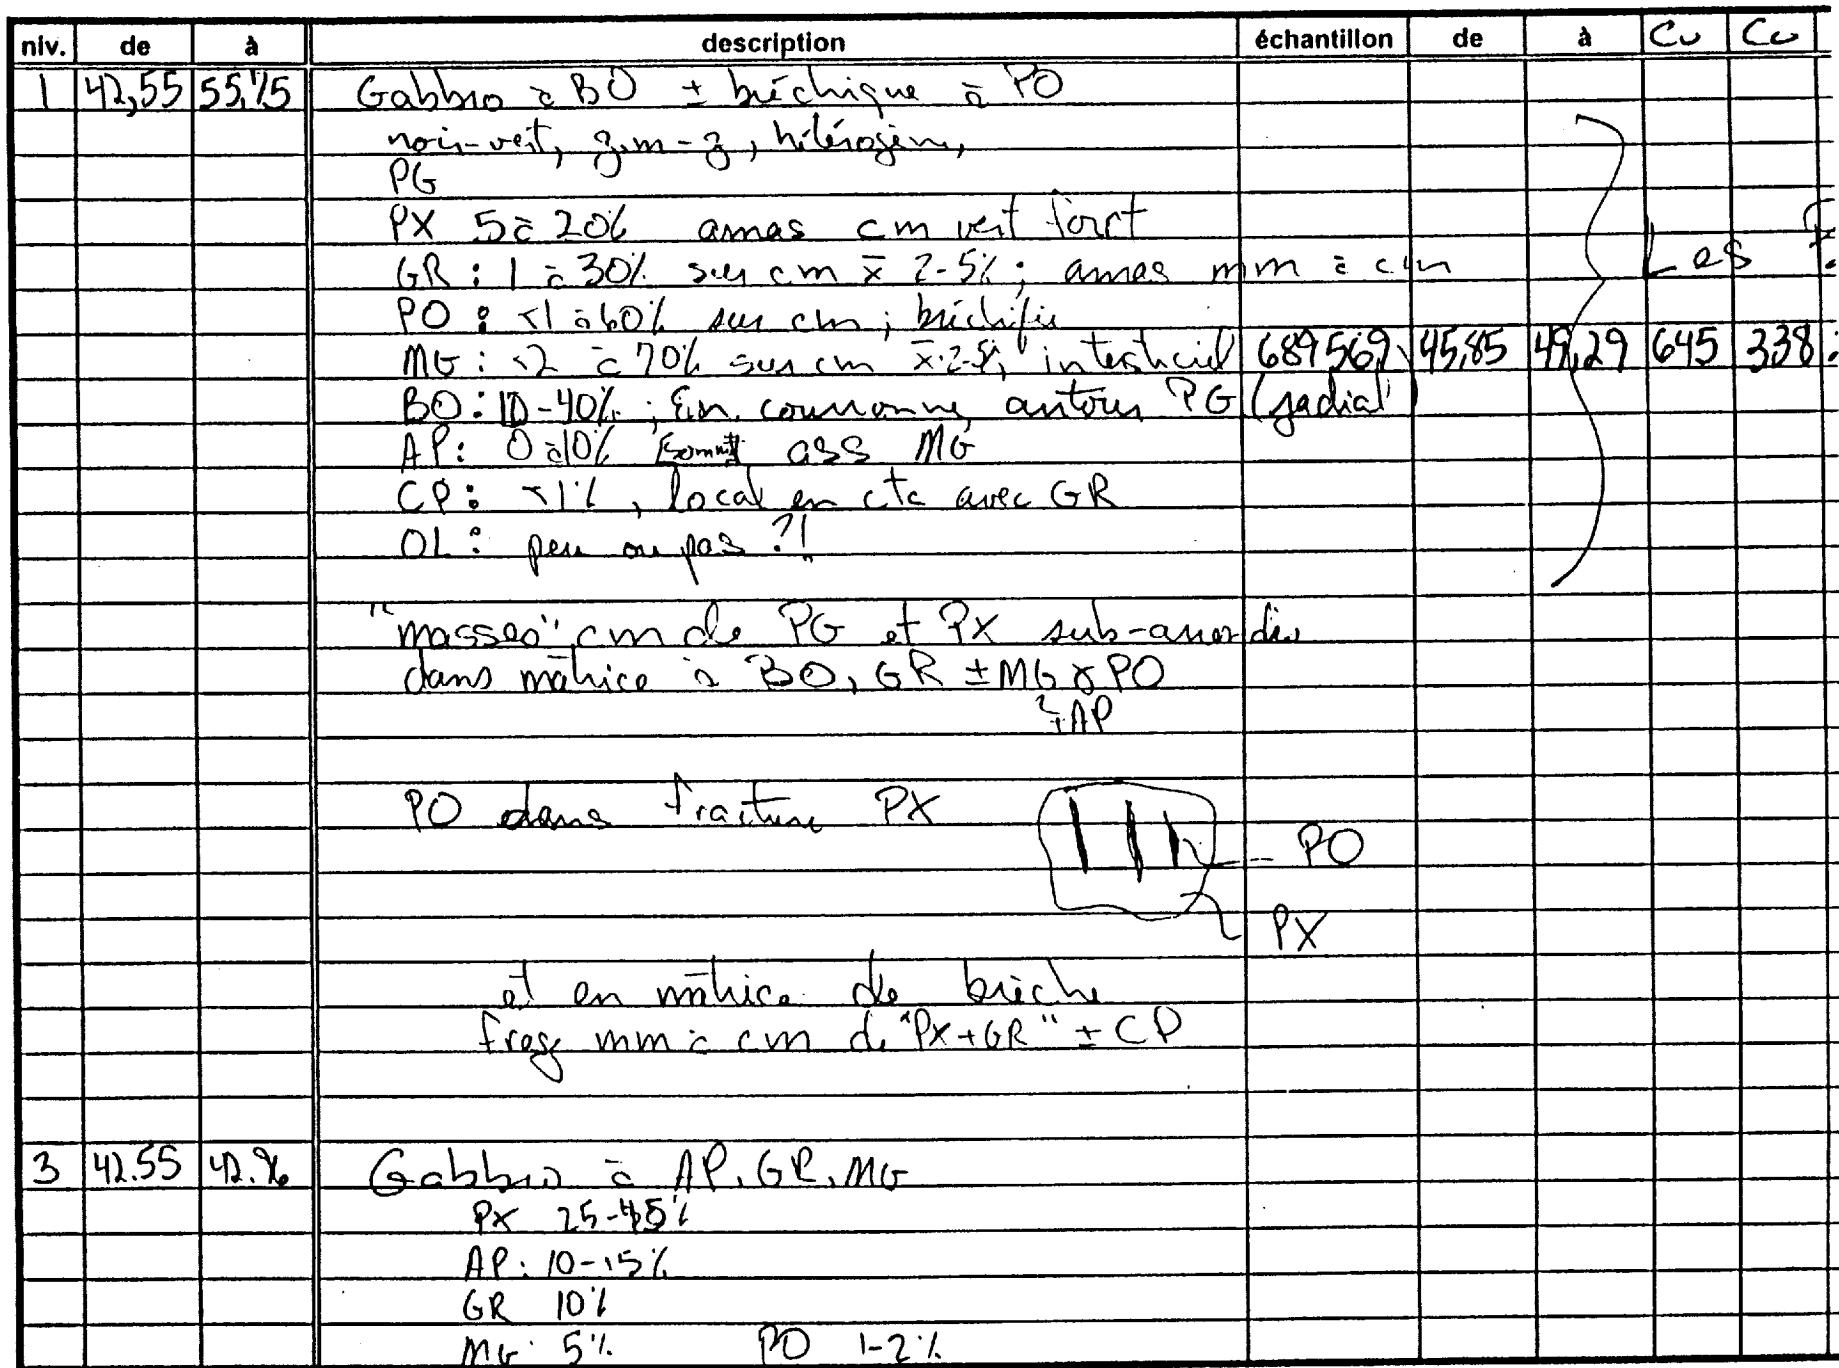 niv. de à description échantillon de à Cu Co
1 42,55 55,75 Gabbro à BO ± bréchique à PO
noir-vert, g.m-g, hétérogène,
PG
PX 5 à 20% amas cm vert foret
GR : 1 à 30% sur cm x̄ 2-5% ; amas mm à cm Les
PO : <1 à 60% sur cm ; bréchifié
MG : <2 à 70% sur cm x̄ 2-5%, interstitiel 689569 45,85 49,29 645 338
BO : 10-40% ; En couronne autour PG (radial)
AP : 0 à 10% ass MG
CP : <1% , local en ctc avec GR
OL : peu ou pas ?!
"masses" cm de PG et PX sub-arrondies
dans matrice à BO, GR ± MG & PO
± AP
PO dans fracture PX
PO
PX
et en matrice de brèche
frag mm à cm de "PX+GR" ± CP
3 42.55 42.96 Gabbro à AP, GR, MG
PX 25-45%
AP : 10-15%
GR 10%
MG : 5% PO 1-2%